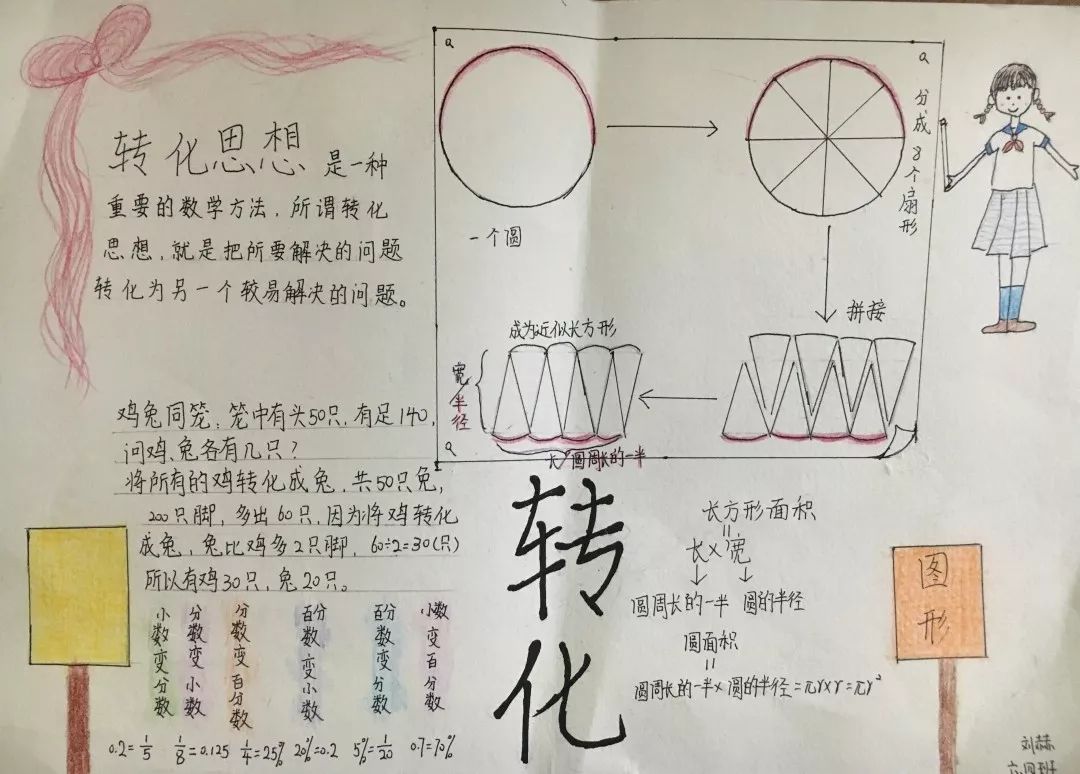 转化思想是一种
重要的数学方法,所谓转化
思想,就是把所要解决的问题
转化为另一个较易解决的问题。
鸡兔同笼:笼中有头50只,有足140,
问鸡、兔各有几只?
将所有的鸡转化成兔,共50只兔,
200只脚,多出60只,因为将鸡转化
成兔,兔比鸡多2只脚,60÷2=30(只)
所以有鸡30只,兔20只。
小数变分数
分数变小数
分数变百分数
百分数变小数
百分数变分数
小数变百分数
0.2=1/5
1/8=0.125
1/4=25%
20%=0.2
5%=1/20
0.7=70%
a
一个圆
a
分成8个扇形
拼接
成为近似长方形
宽
半径
a
长/圆周长的一半
转化
长方形面积
=
长×宽
↓ ↓
圆周长的一半 圆的半径
圆面积
=
圆周长的一半×圆的半径=πr×r=πr²
图形
刘赫
六四班